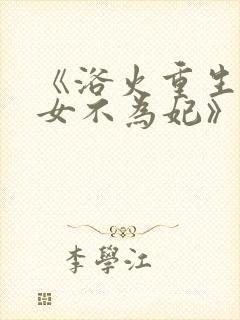 《浴火重生
女不為妃》
李學江